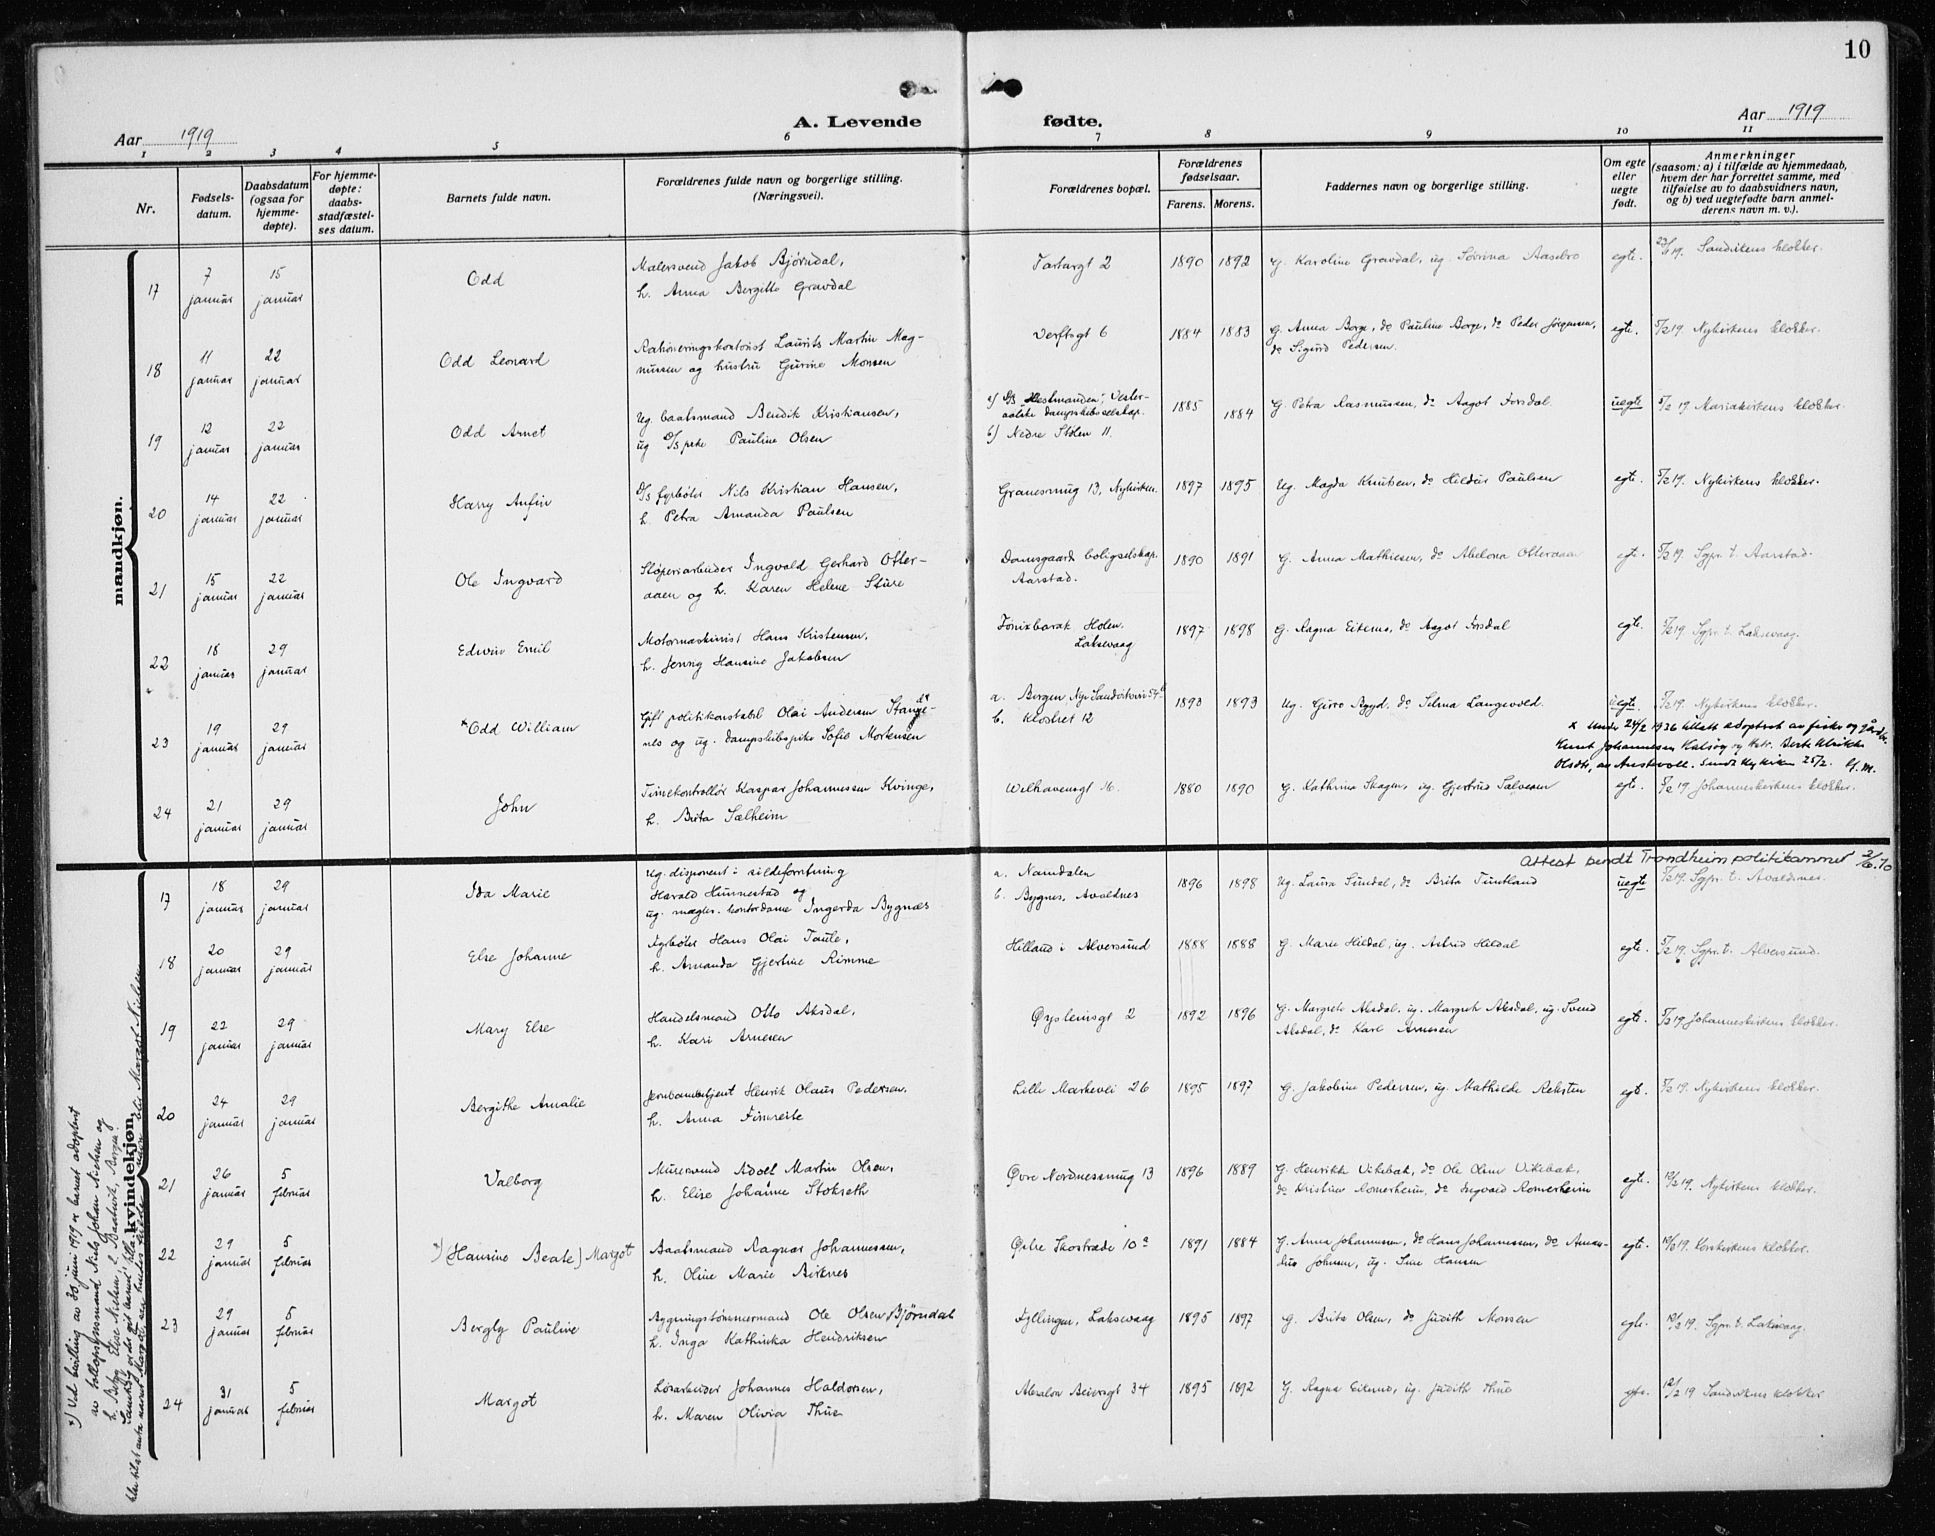 10
Aar 1919
A. Levende fødte.
Aar 1919
1 2 3 4 5 6 7 8 9 10 11
Nr.
Fødsels-
datum.
Daabsdatum
(ogsaa for
hjemme-
døpte).
For hjemme-
døpte:
daabs-
stadfæstel-
ses datum.
Barnets fulde navn.
Forældrenes fulde navn og borgerlige stilling.
(Næringsvei).
Forældrenes bopæl.
Forældrenes
fødselsaar.
Farens. Morens.
Faddernes navn og borgerlige stilling.
Om egte
eller
uegte
født.
Anmerkninger
(saasom: a) i tilfælde av hjemmedaab,
hvem der har forrettet samme, med
tilføielse av to daabsvidners navn,
og b) ved uegtefødte barn anmel-
derens navn m. v.).
mandkjøn.
17 7 januar 15 januar Odd
Malersvend Jakob Bjørndal,
h. Anna Bergitte Gravdal
Tartargt 2 1890 1892 G. Karoline Gravdal, ug. Søvrina Aasebro egte. Sandvikens klokker.
18 11 januar 22 januar Odd Leonard
Rationeringskontorist Laurits Martin Mag-
nussen og hustru Gurine Monsen
Verftsgt 6 1884 1883 G. Anna Borge, do Pauline Borge, do Peder Jørgensen,
do Sigurd Pedersen. egte. 5/2 19. Nykirkens klokker.
19 12 januar 22 januar Odd Arnet
Ug. baatsmand Bendik Kristiansen,
ug D/S pike Pauline Olsen
a) D/S Hestmanden, Vester-
aalske dampskibsselskap.
b) Nedre Stølen 11.
1885 1884 G. Petra Rasmussen, do Aagot Forsdal uegte 5/2 19 Mariakirkens klokker.
20 14 januar 22 januar Harry Anfin
D/S fyrbøter Nils Kristian Hansen,
h. Petra Amanda Paulsen
Granesmug 13, Nykirken. 1897 1895 Ug. Magda Knutsen, do Hildur Paulsen egte. 5/2 19. Nykirkens klokker.
21 15 januar 22 januar Ole Ingvard
Støperiarbeider Ingvald Gerhard Otter-
aaen og h. Karen Helene Sture
Damsgaards boligselskap.
Aarstad.
1890 1891 G. Anna Mathiesen, do Abelona Otteraaen egte. 5/2 19. Sgpr. t. Aarstad.
22 18 januar 29 januar Edwin Emil
Motormaskinist Hans Kristensen,
h. Jenny Hansine Jakobsen
Fønixbarak Holen.
Laksevaag
1897 1898 G. Ragna Eiterns, do Aagot Forsdal egte. 5/2 19. Sgpr. t. Laksevaag.
23 19 januar 29 januar *Odd William
Gift politikonstabel Olai Andersen Stange-
nes og ug. dampskibspike Sofie Mortensen
a. Bergen Nye Sandviksvei 54b
b. Klostret 12
1893 1893 Ug. Giro Rgyd, do Selma Langevold. uegte. 5/2 19. Nykirkens klokker
x Under 24/2 1936 tillatt adoptert av fisker og gårdbr.
Knut Johannesen Kalsøy og hstr. Berte Ulrikke
Olsdtr, av Austevoll. Sendt Nykirken 25/2.
24 21 januar 29 januar John
Timekontrollør Kaspar Johannessen Kvinge,
h. Brita Sælheim
Welhavensgt 16. 1880 1890 G. Kathrina Skagen, ug. Gjertrud Salvesen egte. 5/2 19 Johanneskirkens klokker.
Attest sendt Trondheim politikammer 2/6.70
kvindekjøn.
17 18 januar 29 januar Ida Marie
Ug. disponent i sildeforretning
Harald Hunnestad og
ug. mægler-kontordame Ingerda Bygnæs
a. Namdalen
b. Bygnes, Avaldnes
1896 1898 Ug. Laura Sundal, do Brita Tuntland uegte 5/2 19. Sgpr. t. Avaldsnes.
18 20 januar 29 januar Else Johanne
Fyrbøter Hans Olai Taule,
h. Amanda Gjertine Rimme
Hilland i Alversund 1888 1888 G. Marie Hildal, ug. Astrid Hildal egte. 5/2 19. Sgpr. t. Alversund.
19 22 januar 29 januar Mary Else
Handelsmand Otto Aksdal,
h. Kari Arnesen
Øysteinsgt 2 1892 1896 G. Margrete Aksdal, ug. Margreth Aksdal, ug. Svend
Aksdal, do Karl Arnesen egte. 5/2 19 Johanneskirkens klokker.
20 24 januar 29 januar Bergithe Amalie
Jernbanebetjent Henrik Olaus Pedersen,
h. Anna Fimreite
Lille Markevei 26 1895 1897 G. Jakobine Pedersen, ug. Mathilde Reksten egte. 5/2 19. Nykirkens klokker.
21 26 januar 5 februar Valborg
Murersvend Adolf Martin Olsen,
h. Elise Johanne Stokseth
Øvre Nordnessmug 13 1896 1889 G. Henrikke Vikebak, do Ole Olsen Vikebak,
do Kristine Romerheim, do Ingvald Romerheim egte. 12/2 19. Nykirkens klokker.
22 29 januar 5 februar *) (Hansine Beate) Margot
Baatsmand Ragnar Johannessen,
h. Oline Marie Birknes
Østre Skostræde 10a 1891 1884 G. Anna Johannessen, do Hans Johannessen, do Aman-
dus Johnsen, ug. Sine Hansen egte. Korskirkens klokker.
23 29 januar 5 februar Bergly Pauline
Bygningstømmermand Ole Olsen Bjørndal
h. Inga Kathinka Hendriksen
Fyllingen, Laksevaag 1895 1897 G. Brita Olsen, do Judith Monsen egte. 12/2 19. Sgpr. t. Laksevaag.
24 31 januar 5 februar Margot
Løsarbeider Johannes Haldorsen,
h. Maren Olivia Thue
Absalon Beiersgt 34 1895 1892 G. Ragna Eiterns, ug. Judith Thue egte. 12/2 19 Sandvikens klokker
*) Ved bevilling av 30 juni 1919 er barnet adoptert
av Niels Johan Nielsen og
h. Else Nielsen, Bergen.